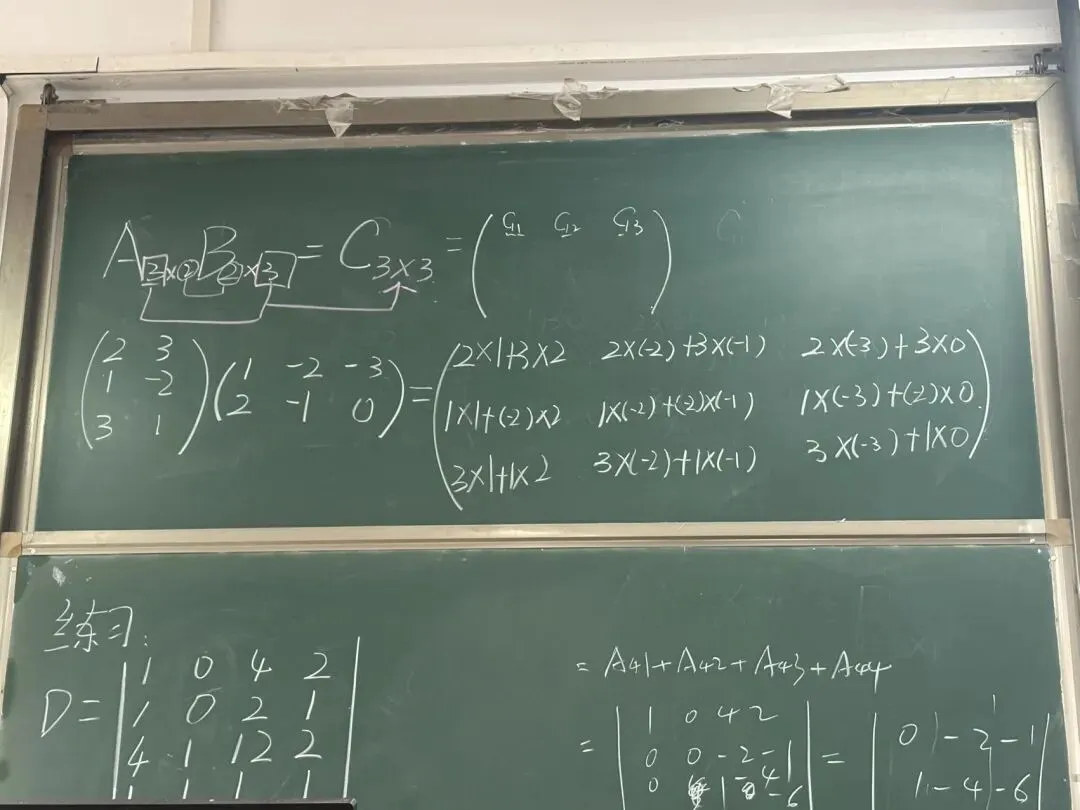 A₃ₓ₂ B₂ₓ₃ = C₃ₓ₃ = ( C₁₁ C₁₂ C₁₃ )
( 2 3 ; 1 -2 ; 3 1 ) ( 1 -2 -3 ; 2 -1 0 ) = ( 2×1+3×2 2×(-2)+3×(-1) 2×(-3)+3×0
1×1+(-2)×2 1×(-2)+(-2)×(-1) 1×(-3)+(-2)×0
3×1+1×2 3×(-2)+1×(-1) 3×(-3)+1×0 )
练习:
D = | 1 0 4 2 |
| 1 0 2 1 |
| 4 1 12 2 |
| 1 1 1 1 |
= A₄₁+A₄₂+A₄₃+A₄₄
= | 1 0 4 2 |
| 0 0 -2 -1 | =
| 0 1 -4 -6 |
| 0 -2 -1 |
| 1 -4 -6 |